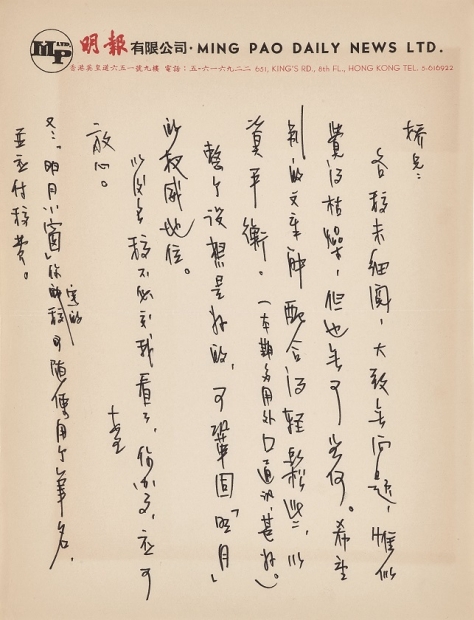 MP LTD.
明報有限公司・MING PAO DAILY NEWS LTD.
香港英皇道六五一號九樓 電話：五-六一六九二二 651, KING'S RD., 8th FL., HONG KONG TEL. 5-616922
兄：
各稿未細閱，大致無問題，惟似
覺得枯燥，但也無可奈何。希望
別的文章能配合得輕鬆些，以
資平衡。（本期多用外口通訊，甚好。）
整个設想是好的，可鞏固「明月」
的权威地位。
以後各稿不必交我看了，你 ，应可
放心。
又：「明月小窗」你寫的稿可隨便用个筆名，
並应付稿費。